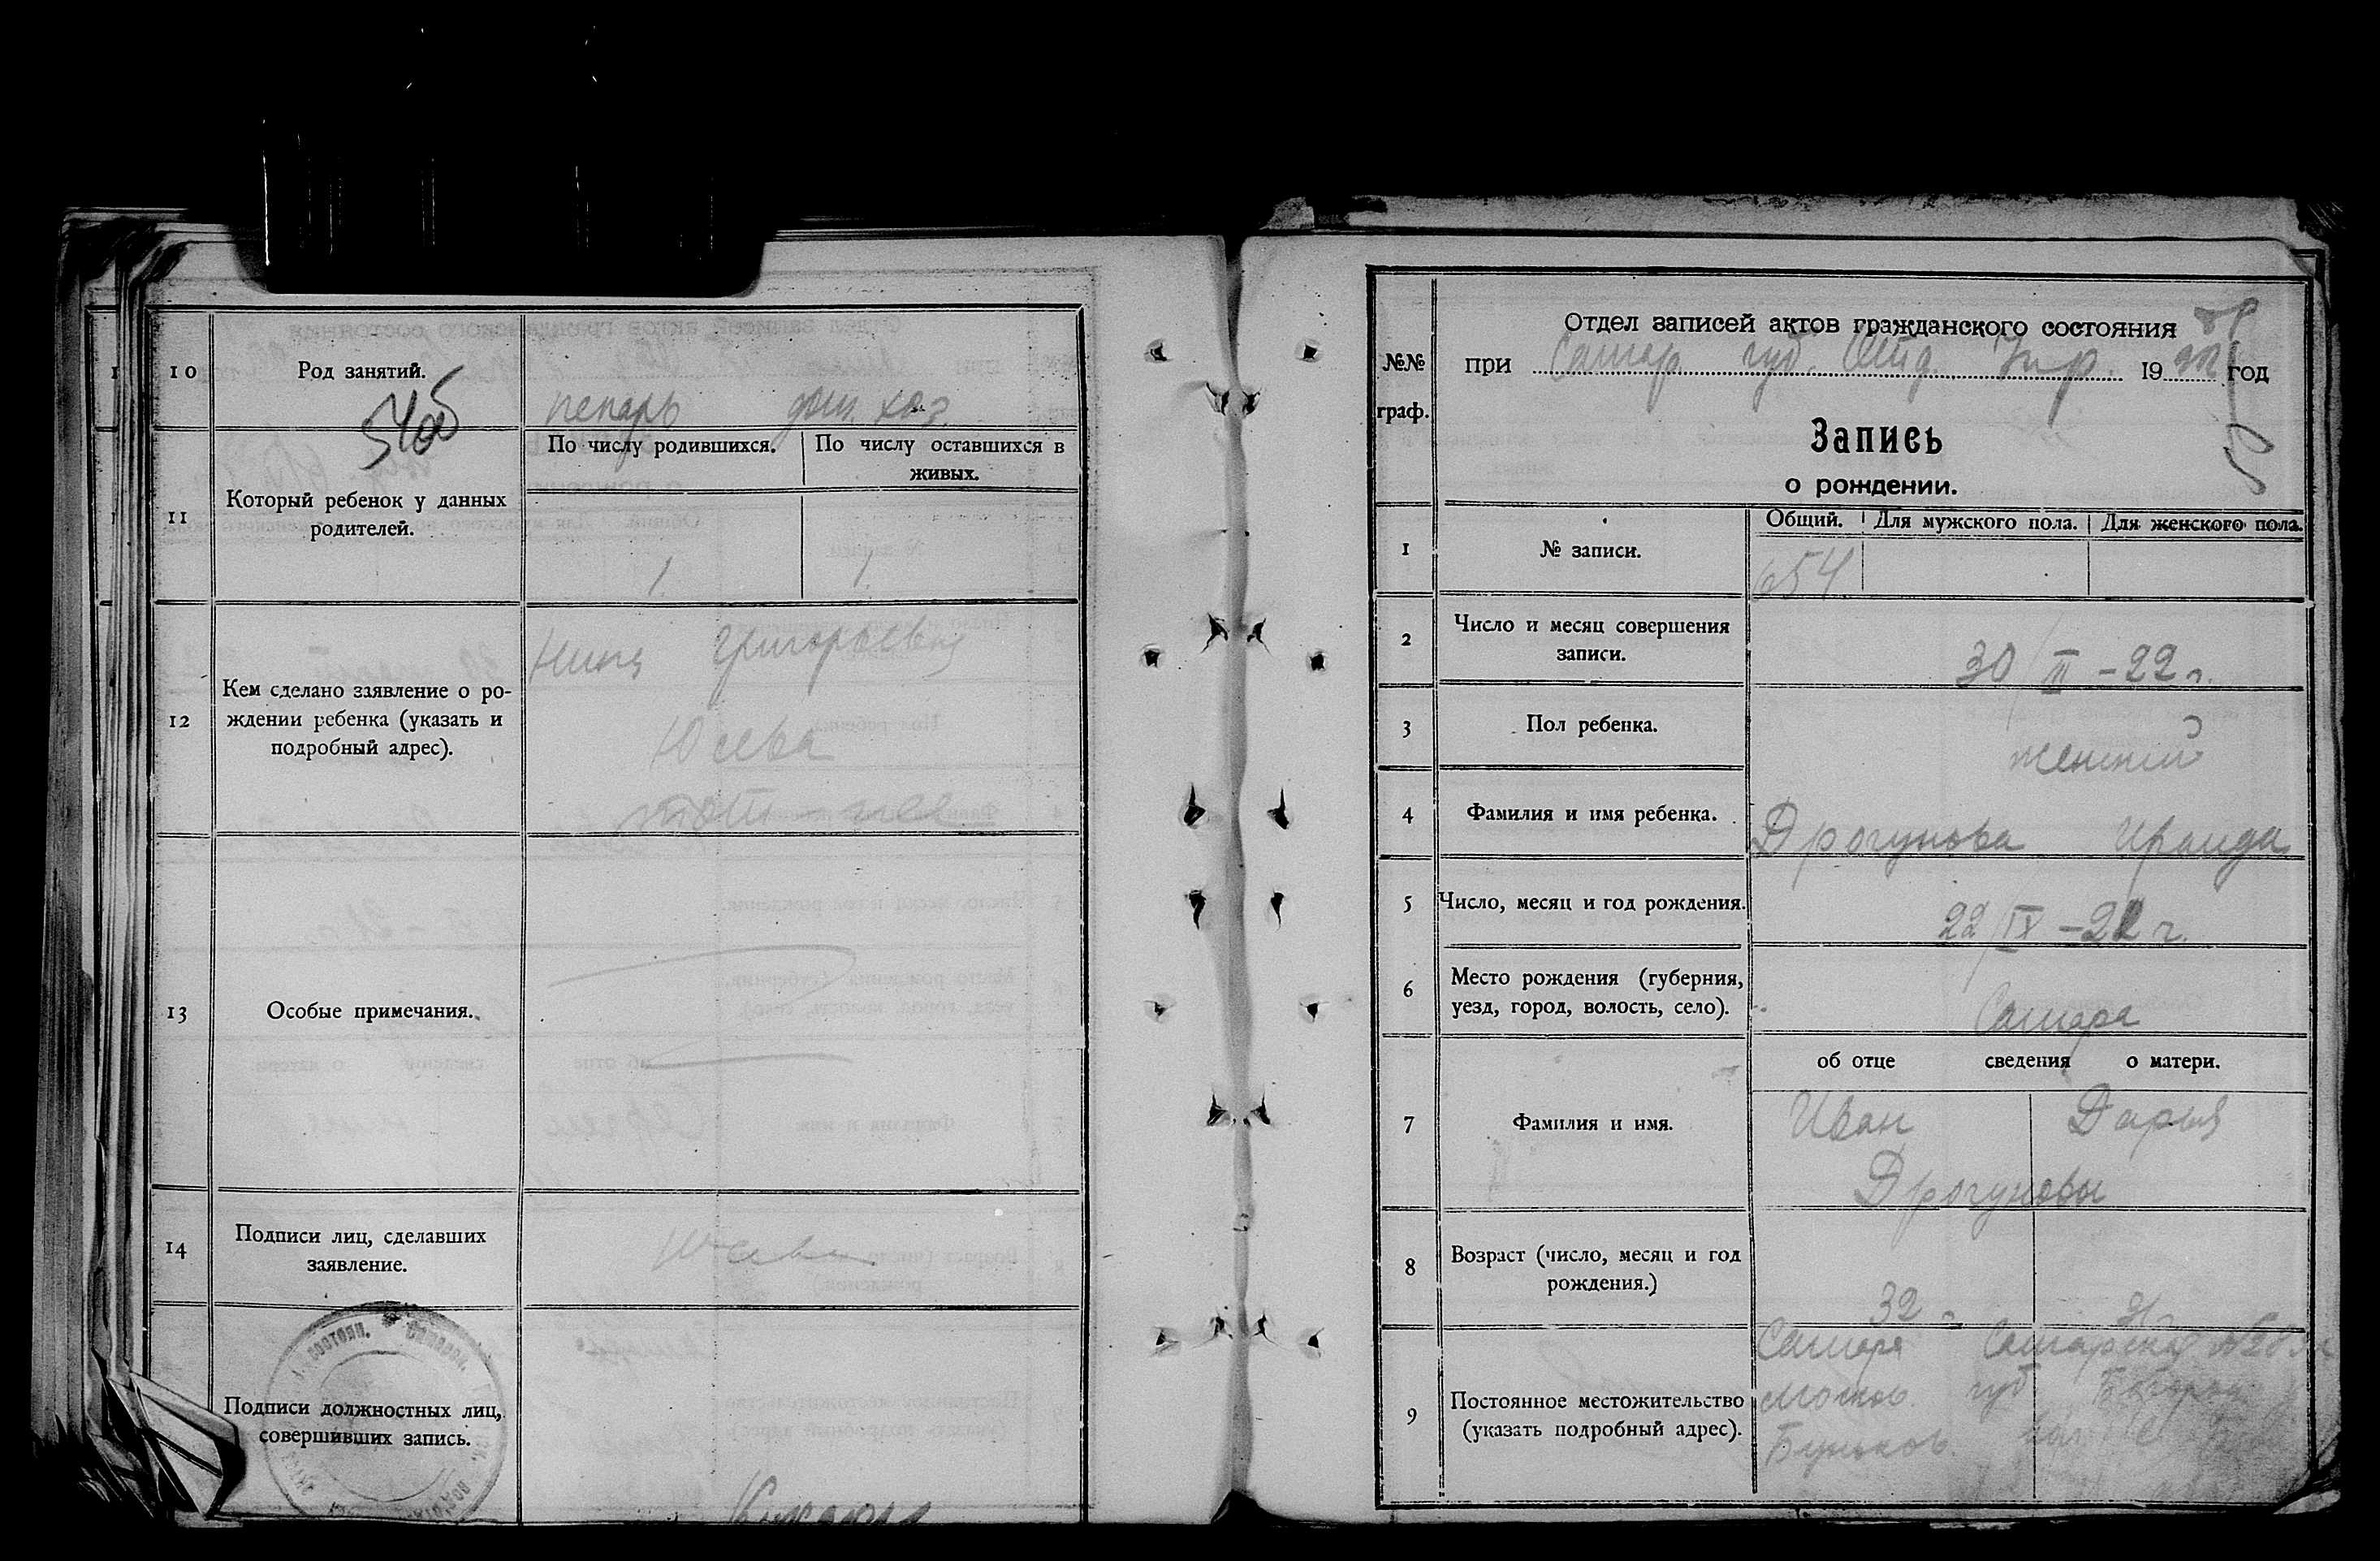 10
Род занятий.
пекарь дом. хоз.
11
Который ребенок у данных
родителей.
По числу родившихся.
По числу оставшихся в
живых.
1. 1.
12
Кем сделано заявление о ро-
ждении ребенка (указать и
подробный адрес).
Нина Григорьевна
Юсева
13
Особые примечания.
14
Подписи лиц, сделавших
заявление.
Подписи должностных лиц,
совершивших запись.
№№
граф.
Отдел записей актов гражданского состояния
при Самар. губ. Отд. Упр. 19 год
Запись
о рождении.
1
№ записи.
Общий. Для мужского пола. Для женского пола.
654
2
Число и месяц совершения
записи.
30/III - 22 г.
3
Пол ребенка.
женский
4
Фамилия и имя ребенка.
Дрогунова Ираида
5
Число, месяц и год рождения.
22/IX - 21 г.
6
Место рождения (губерния,
уезд, город, волость, село).
Самара
об отце сведения о матери.
7
Фамилия и имя.
Иван Дарья
Дрогуновы
8
Возраст (число, месяц и год
рождения.)
32
9
Постоянное местожительство
(указать подробный адрес).
Самара Самарская
Москов. губ. Богород.
Буньков. вол.